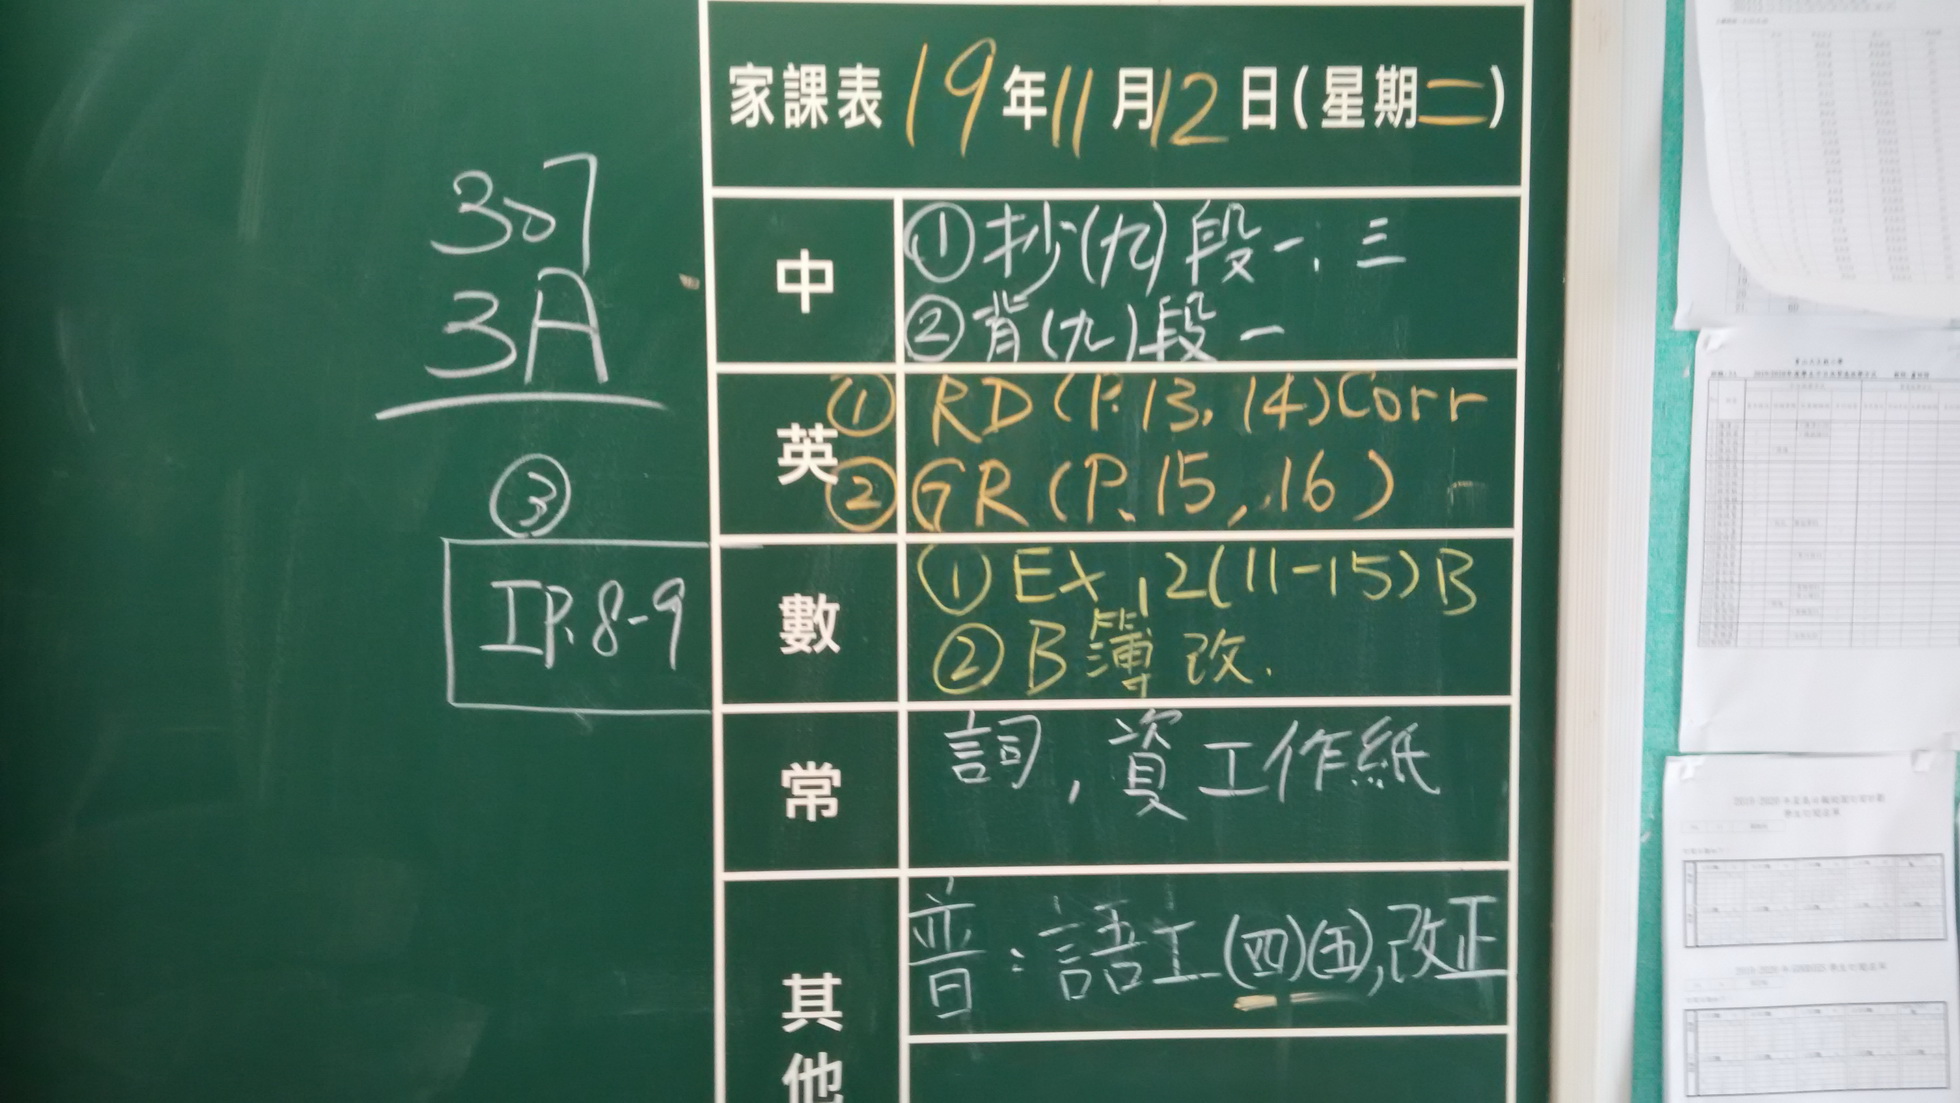 家課表 19年11月12日(星期二)
307
3A
中
①抄(九)段一、三
②背(九)段一
英
① RD (P.13, 14) Corr
② GR (P.15, 16)
③
IP.8-9
數
① Ex 12 (11-15) B
② B簿改.
常
詞, 資工作紙
其他
普：語工(四)(五),改正